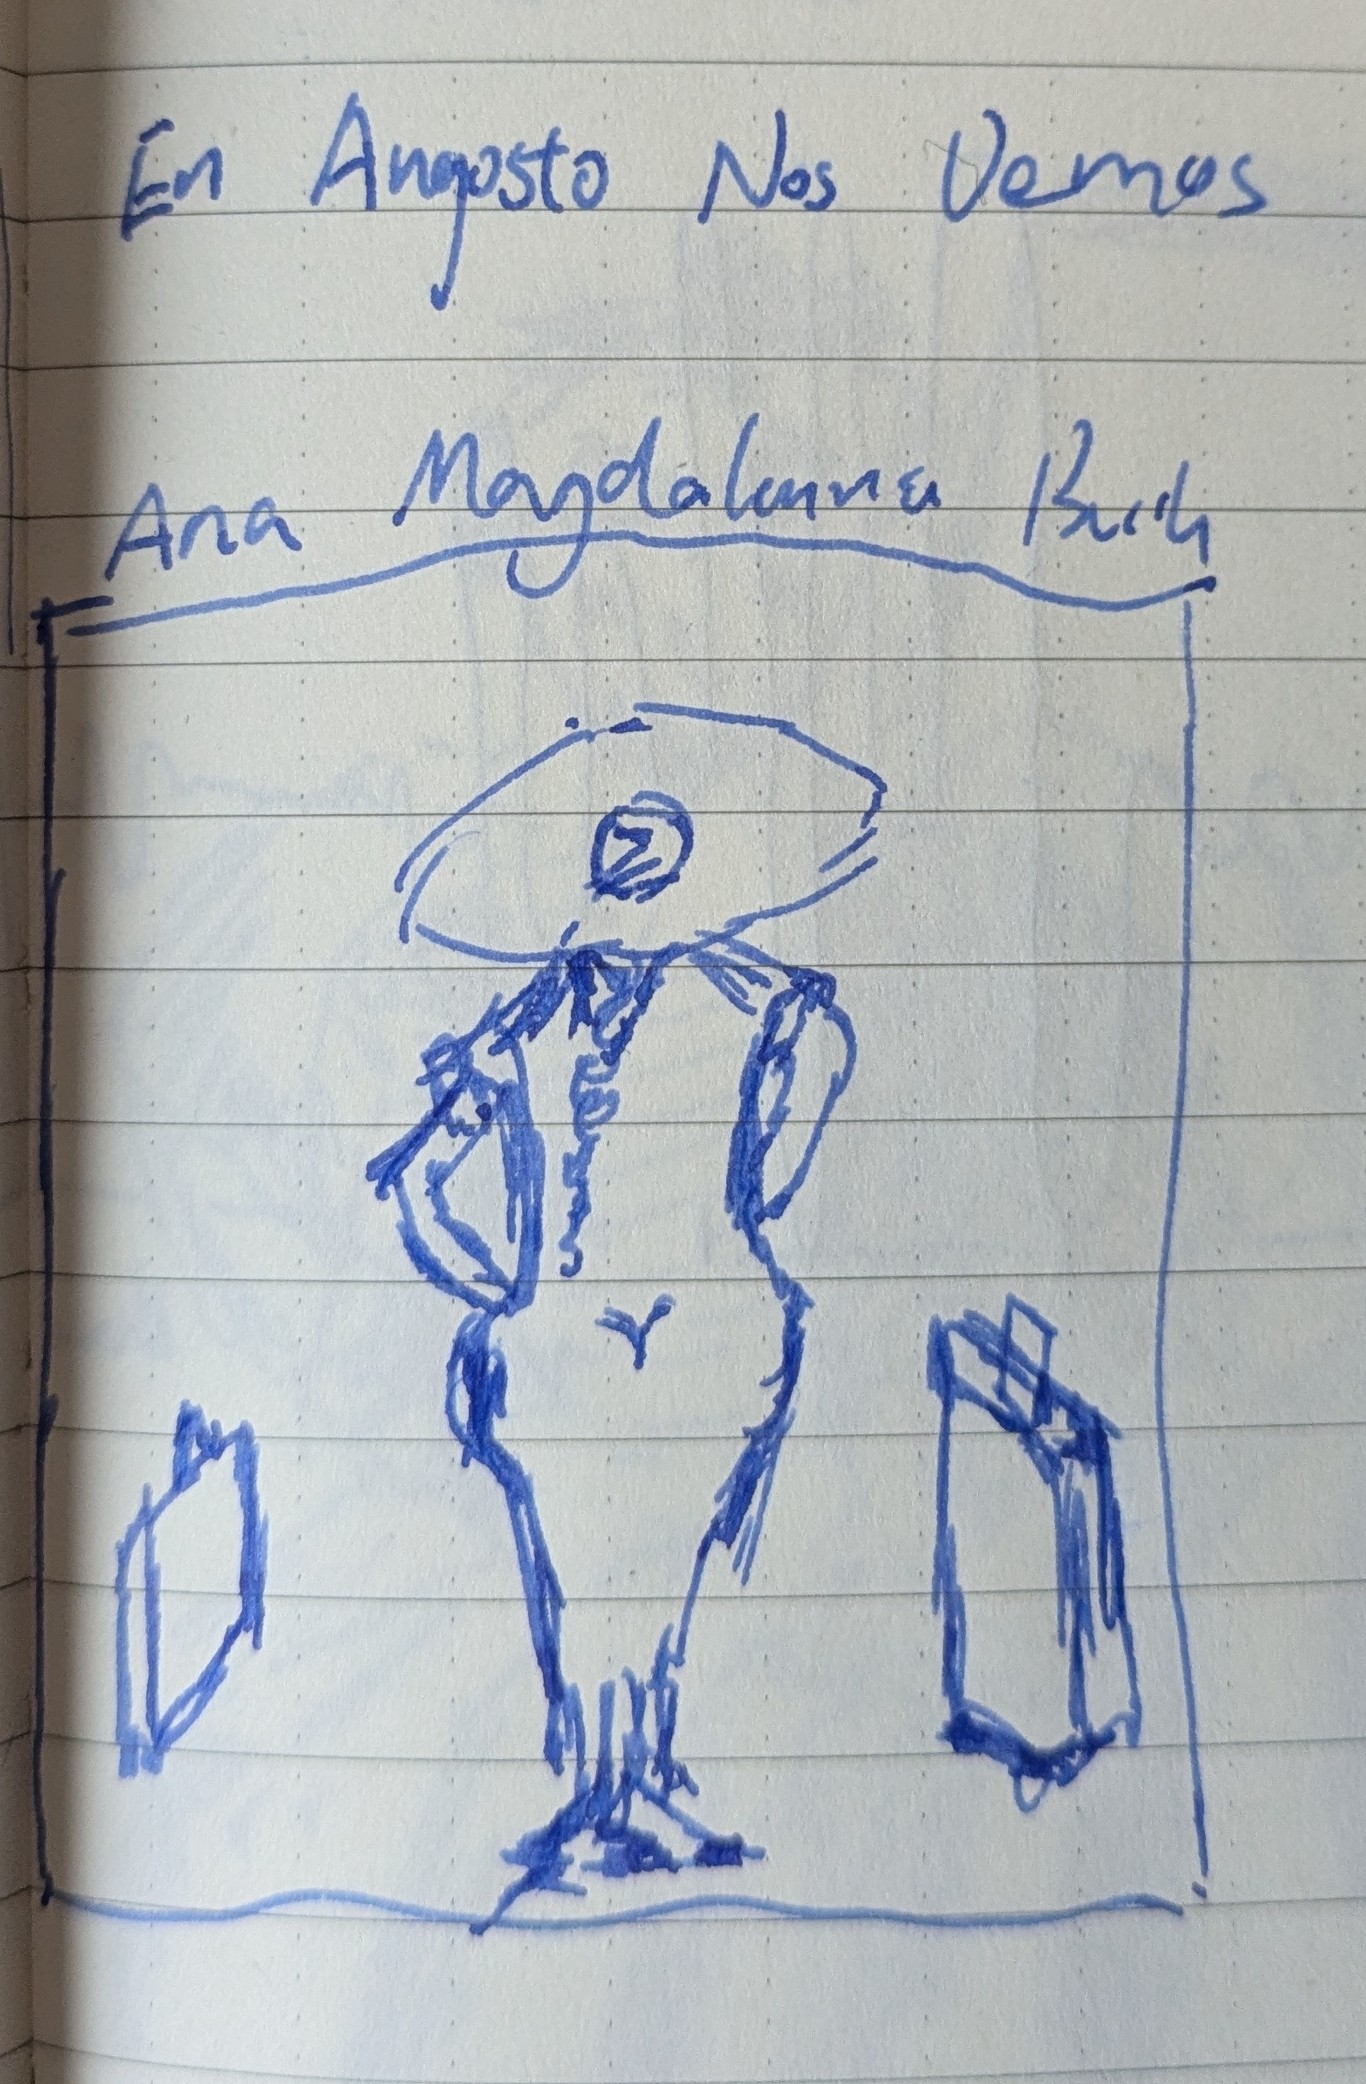 En Angosto Nos Vemos
Ana Magdalenna Bach